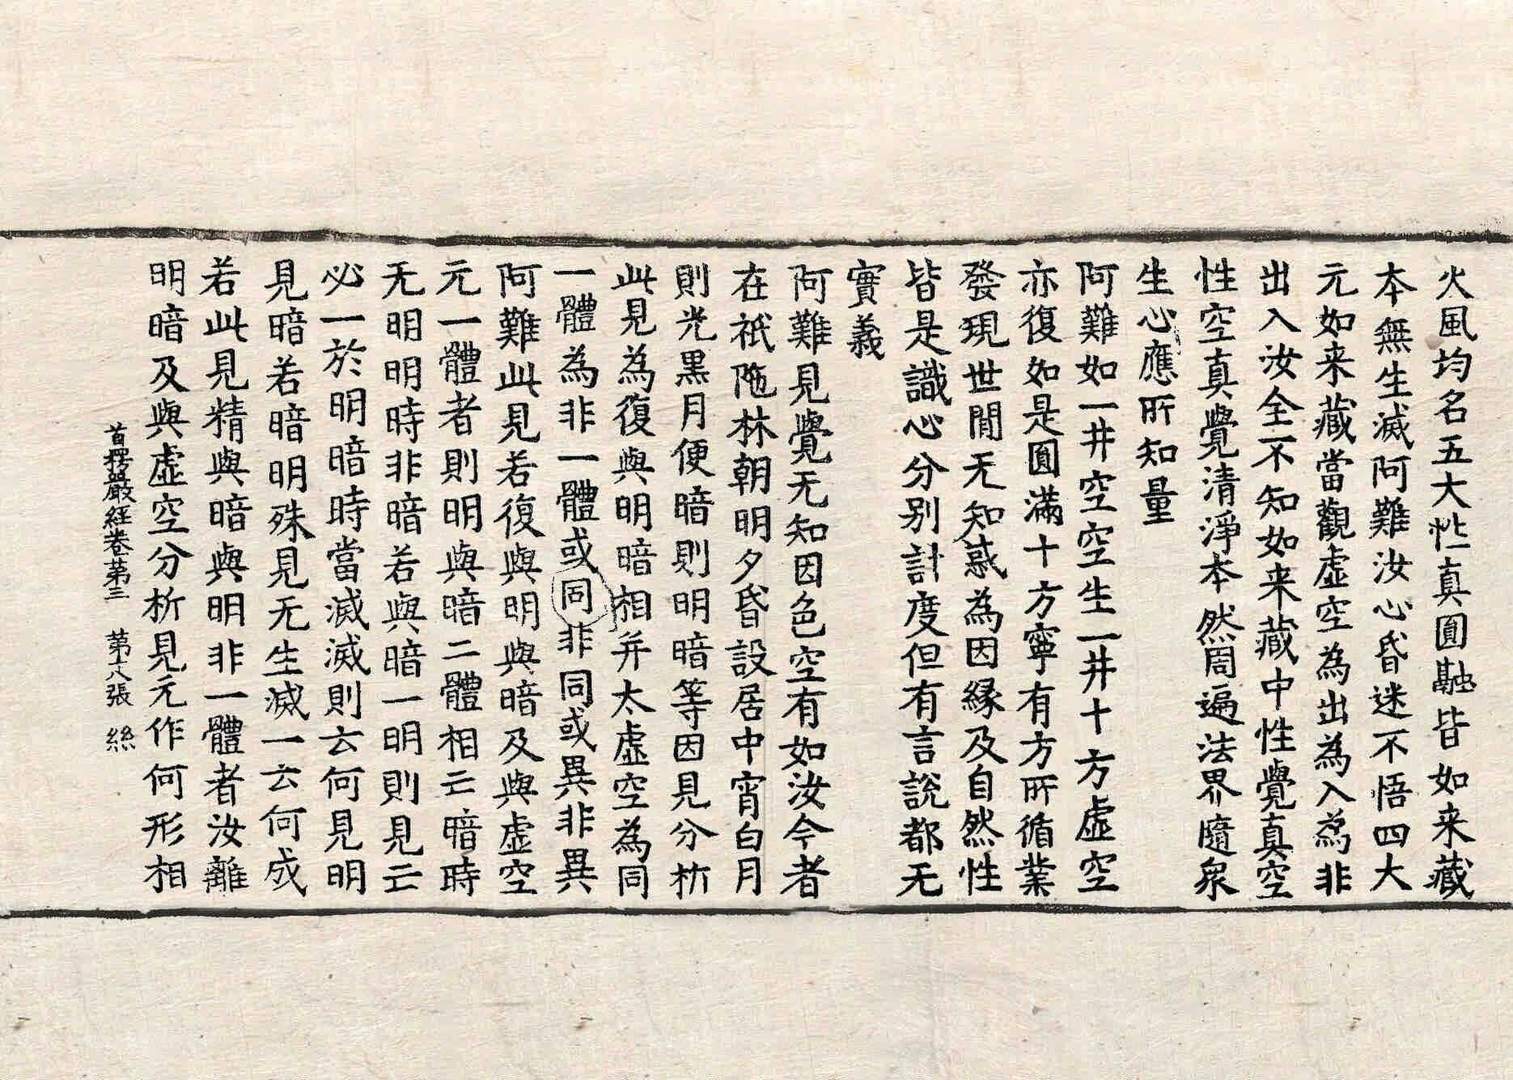 火風均名五大性真圓融皆如来藏
本無生滅阿難汝心昏迷不悟四大
元如来藏當觀虛空為出為入為非
出入汝全不知如来藏中性覺真空
性空真覺清淨本然周遍法界隨衆
生心應所知量
阿難如一井空空生一井十方虛空
亦復如是圓滿十方寧有方所循業
發現世間无知惑為因緣及自然性
皆是識心分别計度但有言說都无
實義
阿難見覺无知因色空有如汝今者
在祇陁林朝明夕昏設居中宵白月
則光黑月便暗則明暗等因見分析
此見為復與明暗相并太虛空為同
一體為非一體或同非同或異非異
阿難此見若復與明與暗及與虛空
元一體者則明與暗二體相亡暗時
无明明時非暗若與暗一明則見亡
必一於明暗時當滅滅則云何見明
見暗若暗明殊見无生滅一云何成
若此見精與暗與明非一體者汝離
明暗及與虛空分析見元作何形相
首楞嚴經卷第三　第十八張　絲